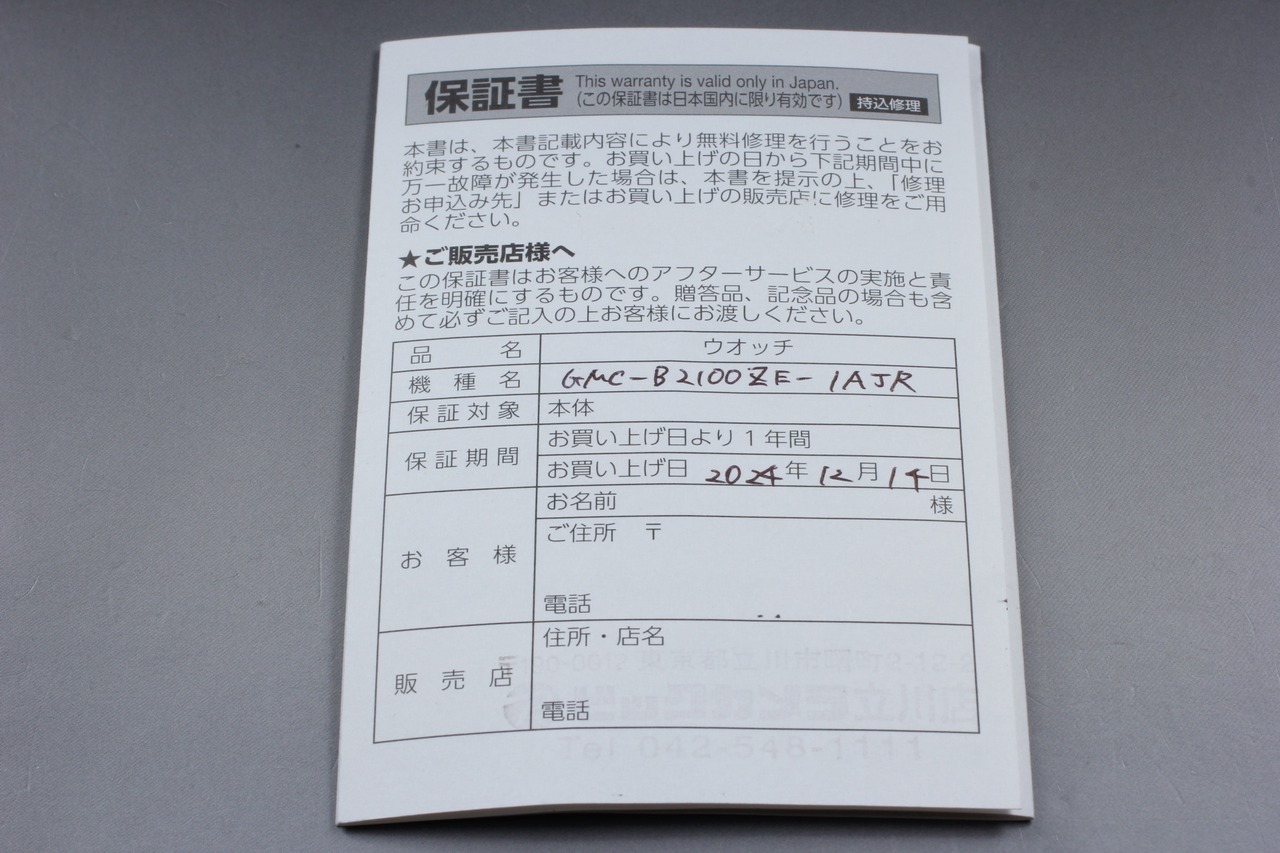 保証書 This warranty is valid only in Japan.
(この保証書は日本国内に限り有効です) 持込修理
本書は、本書記載内容により無料修理を行うことをお
約束するものです。お買い上げの日から下記期間中に
万一故障が発生した場合は、本書を提示の上、「修理
お申込み先」またはお買い上げの販売店に修理をご用
命ください。
★ご販売店様へ
この保証書はお客様へのアフターサービスの実施と責
任を明確にするものです。贈答品、記念品の場合も含
めて必ずご記入の上お客様にお渡しください。
品名 ウオッチ
機種名 GMC-B2100ZE-1AJR
保証対象 本体
保証期間 お買い上げ日より1年間
お買い上げ日 2024年12月14日
お客様 お名前 様
ご住所 〒
電話
販売店 住所・店名
東京都立川市曙町2-12-2
立川店
電話
Tel 042-548-1111